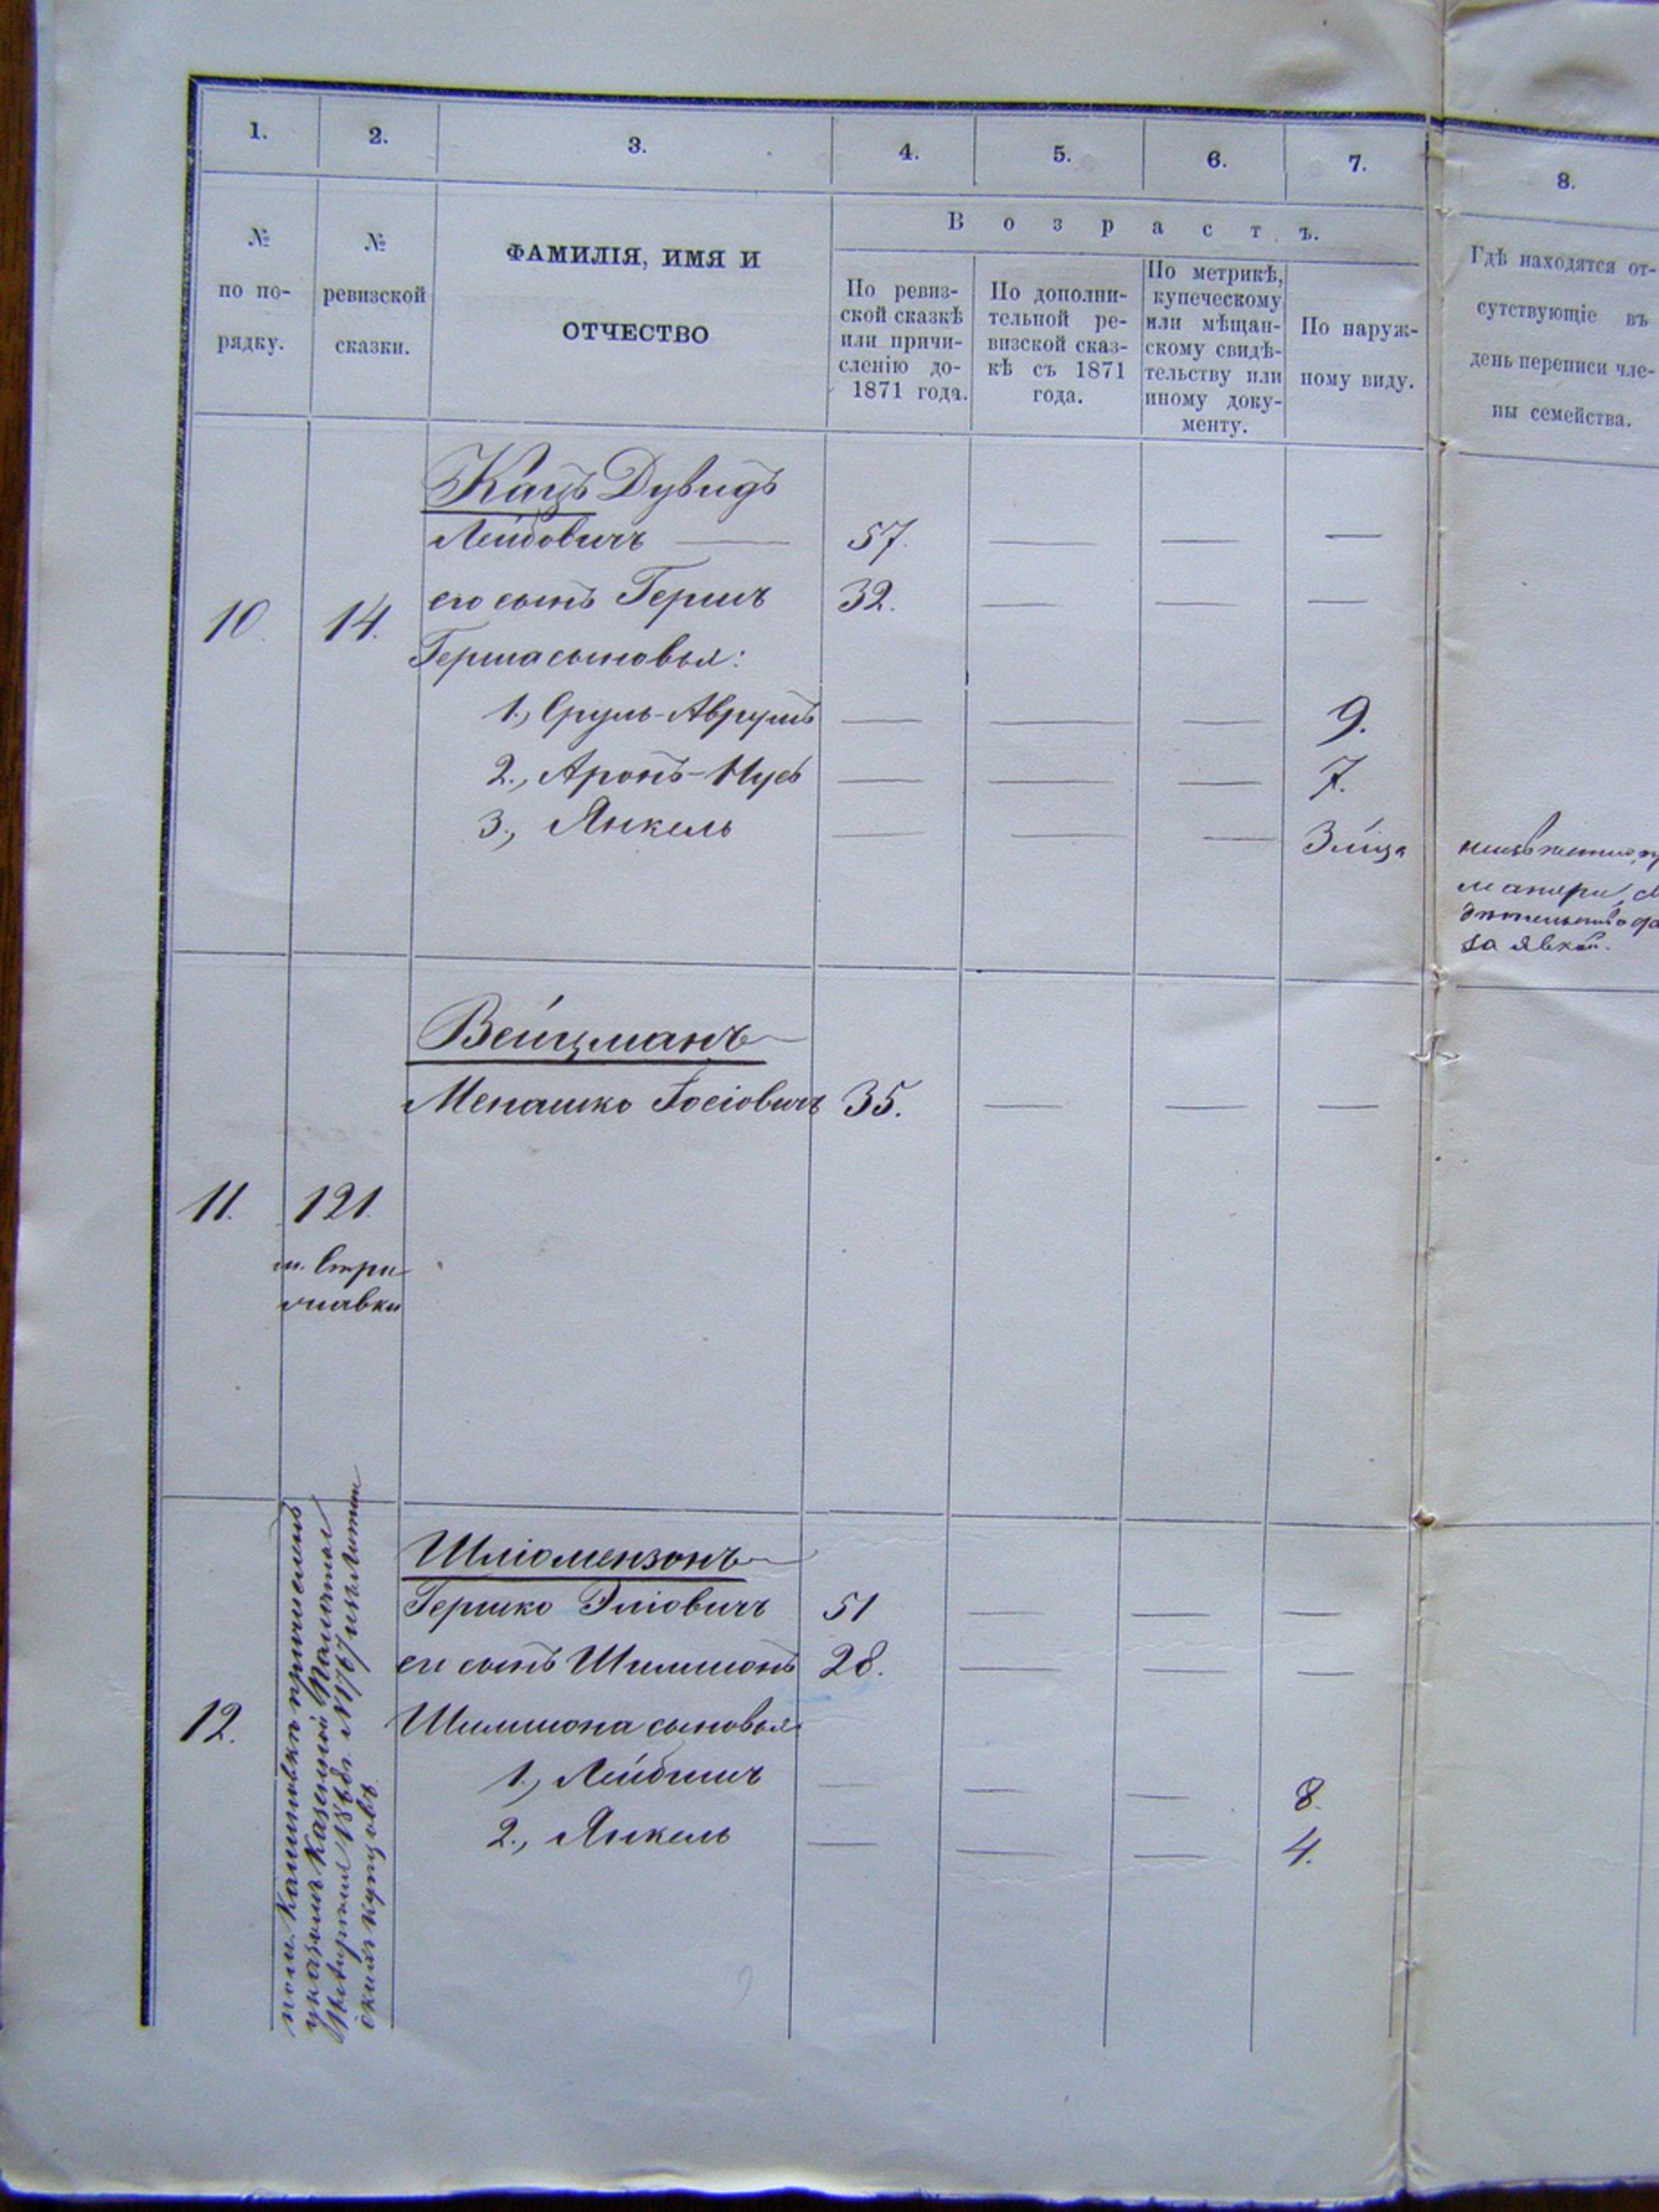 1. 2. 3. 4. 5. 6. 7. 8.
№
по по-
рядку.
№
ревизской
сказки.
ФАМИЛІЯ, ИМЯ И
ОТЧЕСТВО
Возрастъ.
По ревиз-
ской сказкѣ
или причи-
сленію до-
1871 года.
По дополни-
тельной ре-
визской сказ-
кѣ съ 1871
года.
По метрикѣ,
купеческому
или мѣщан-
скому свидѣ-
тельству или
иному доку-
менту.
По наруж-
ному виду.
Гдѣ находятся от-
сутствующіе въ
день переписи чле-
ны семейства.
Кацъ Дувидъ
Лейбовичъ — 57. — — —
его сынъ Гершъ 32. — — —
10. 14.
Герша сыновья:
1., Сруль-Аврумъ — — — 9.
2., Аронъ-Нусъ — — — 7.
3., Янкель — — — 3 м̃ца
матери
за явкой.
Вейцманъ
Менашко Іосіовичъ 35. — — —
11. 121.
м. Стри
жавки
Шліомензонъ
Гершко Эліовичъ 51 — — —
его сынъ Шлимонъ 28. — — —
12.
Шлимона сыновья
1., Лейбишъ — — — 8.
2., Янкель — — — 4.
причисленъ
указомъ Казенной Палаты
купцовъ